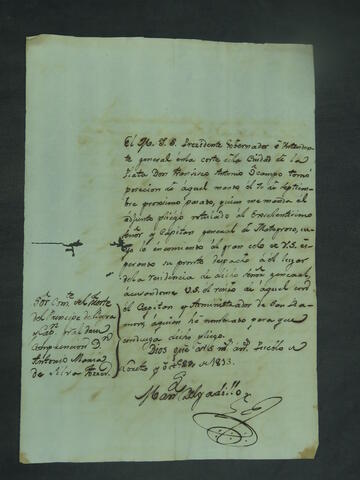 El M. Y. S. Presidente Governador é Intenden-
te general en la corte de la Ciudad de la
Plata Don Antonio Ocampo tomó
posecion de aquel mando el 7 de Septiem-
bre proximo pasado, quien me manda el
adjunto pliego rotulado al Excelentisimo
Señor y Capitan general de Matogroso,
lo encamino al gran celo de V.S.
esperando su pronto despacho á el lugar
de la residencia de dicho Señor general,
acusandome V.S. el recivo de aquel con
el Capitan y Administrador de San Ra-
mon, á quien hé nombrado para que
conduzga dicho pliego.
Dios gue. á V.S. m. an. Pueblo de
Loreto y 8re. 22 de 1833.
Mar. Delgadillo
Sor. Com.te del Fuerte
del Principe de Beira
y Cap.
D.n
Antonio Maria
de Silva